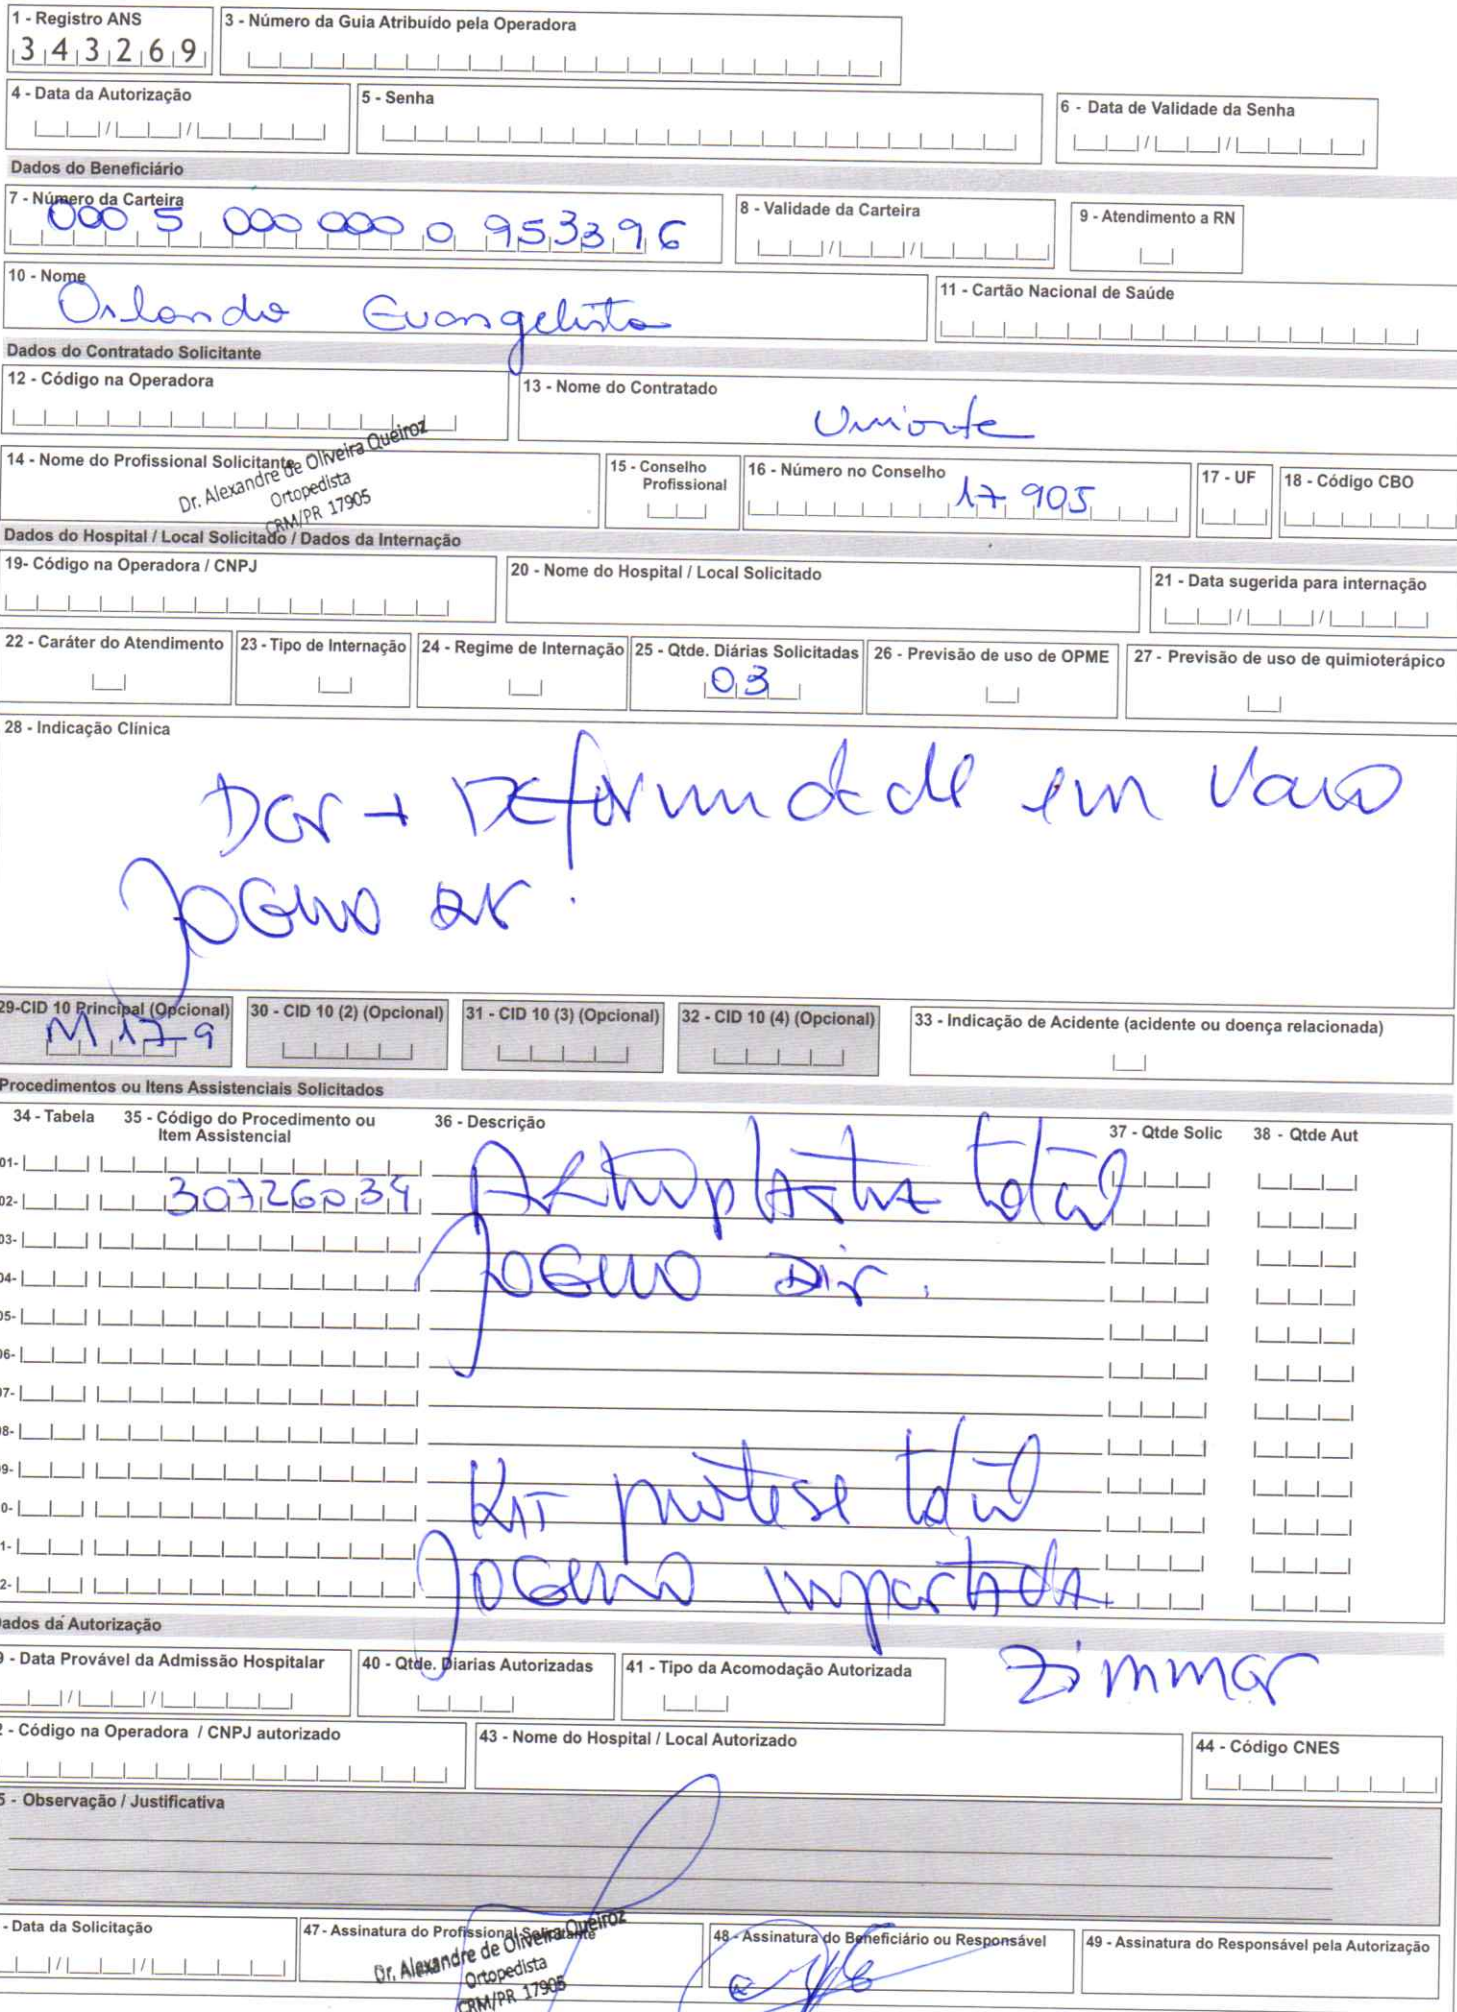 1 - Registro ANS
3 4 3 2 6 9
3 - Número da Guia Atribuído pela Operadora
4 - Data da Autorização
5 - Senha
6 - Data de Validade da Senha
Dados do Beneficiário
7 - Número da Carteira
000 5 000 000 0 953396
8 - Validade da Carteira
9 - Atendimento a RN
10 - Nome
Orlando Evangelista
11 - Cartão Nacional de Saúde
Dados do Contratado Solicitante
12 - Código na Operadora
13 - Nome do Contratado
Uniorte
14 - Nome do Profissional Solicitante
Dr. Alexandre de Oliveira Queiroz
Ortopedista
CRM/PR 17905
15 - Conselho Profissional
16 - Número no Conselho
17 905
17 - UF
18 - Código CBO
Dados do Hospital / Local Solicitado / Dados da Internação
19- Código na Operadora / CNPJ
20 - Nome do Hospital / Local Solicitado
21 - Data sugerida para internação
22 - Caráter do Atendimento
23 - Tipo de Internação
24 - Regime de Internação
25 - Qtde. Diárias Solicitadas
03
26 - Previsão de uso de OPME
27 - Previsão de uso de quimioterápico
28 - Indicação Clínica
Dor + Deformidade em Varo
Joelho Dir.
29-CID 10 Principal (Opcional)
M 17 9
30 - CID 10 (2) (Opcional)
31 - CID 10 (3) (Opcional)
32 - CID 10 (4) (Opcional)
33 - Indicação de Acidente (acidente ou doença relacionada)
Procedimentos ou Itens Assistenciais Solicitados
34 - Tabela
35 - Código do Procedimento ou Item Assistencial
36 - Descrição
37 - Qtde Solic
38 - Qtde Aut
01-
Artroplastia total
02- 30726034
03-
Joelho Dir.
04-
05-
06-
07-
08-
09-
Kit prótese total
0-
1-
Joelho importada
2-
Zimmer
Dados da Autorização
9 - Data Provável da Admissão Hospitalar
40 - Qtde. Diarias Autorizadas
41 - Tipo da Acomodação Autorizada
2 - Código na Operadora / CNPJ autorizado
43 - Nome do Hospital / Local Autorizado
44 - Código CNES
5 - Observação / Justificativa
- Data da Solicitação
47- Assinatura do Profissional Solicitante
Dr. Alexandre de Oliveira Queiroz
Ortopedista
CRM/PR 17905
48 - Assinatura do Beneficiário ou Responsável
49 - Assinatura do Responsável pela Autorização